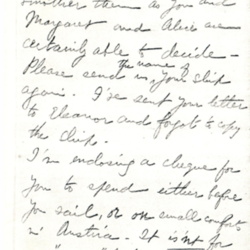 smother them as you and
Margaret and Alice are
certainly able to decide –
Please send us the name of your ship
again. I've sent your letter
to Eleanor and forgot to copy
the ship.
I'm enclosing a cheque for
you to spend either before
you sail, or on small comforts
in Austria. It is not for